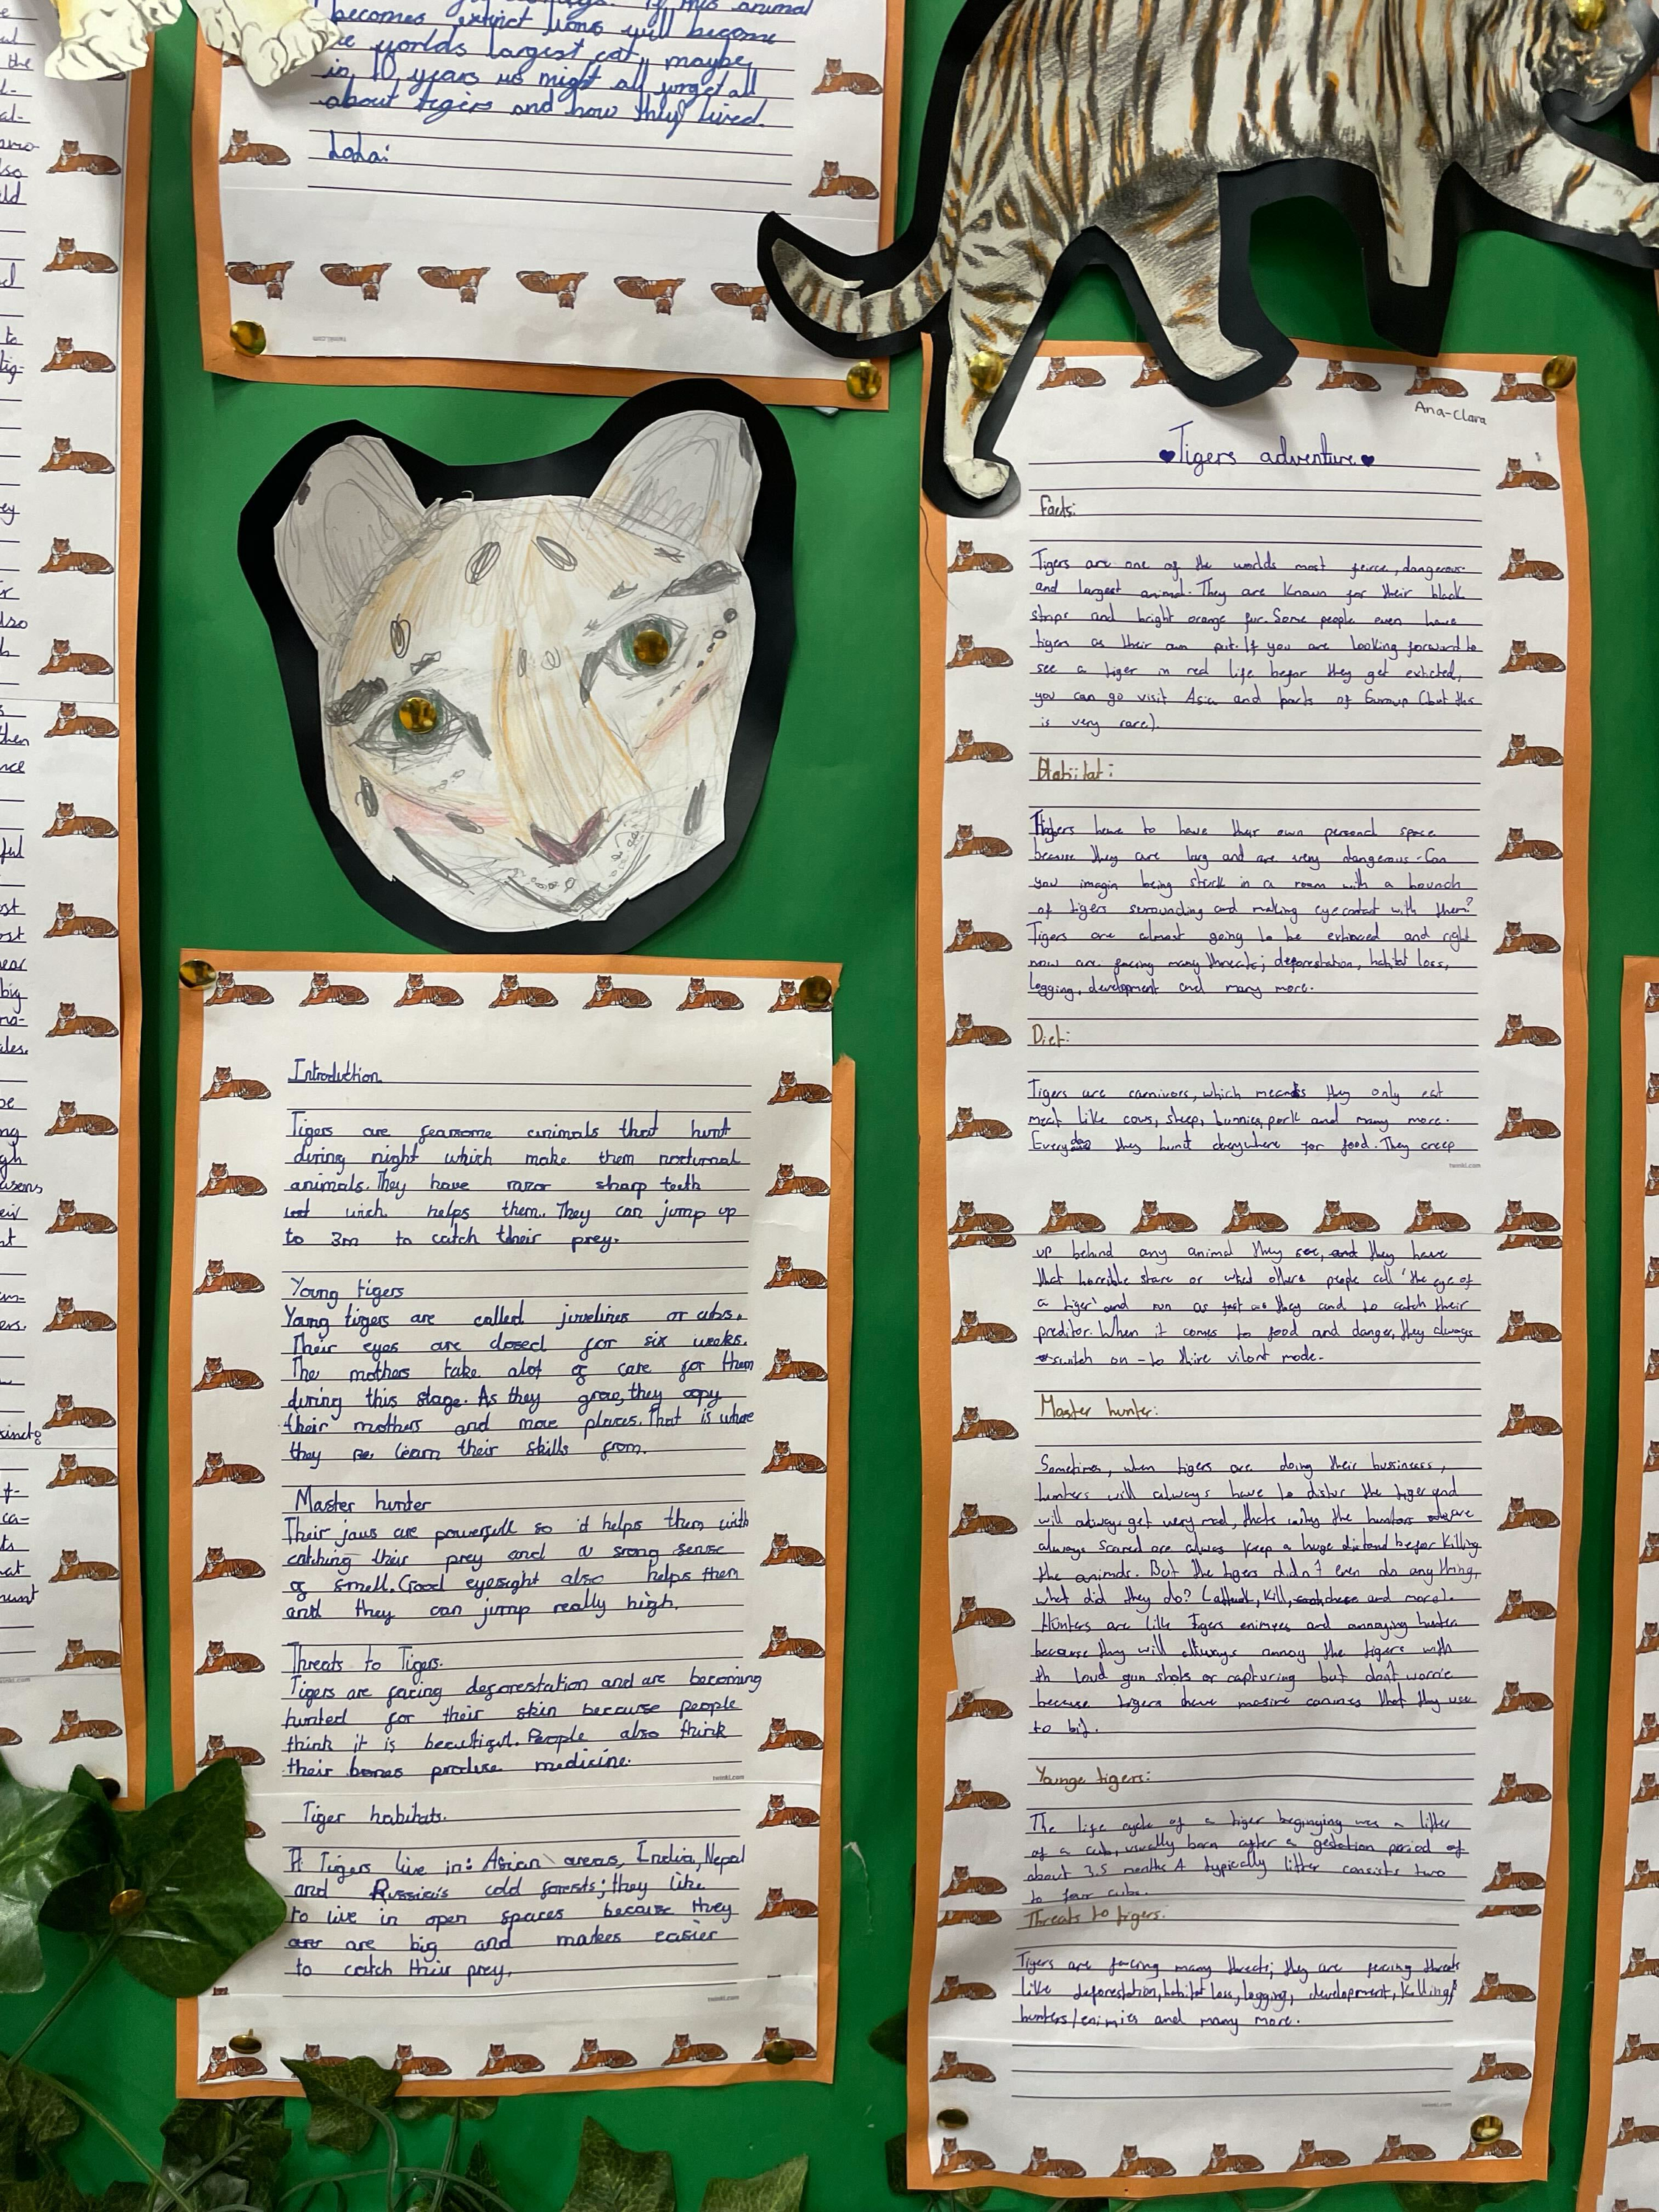 becomes extinct lions will become
the worlds largest cat, maybe
in 10 years us might all forget all
about tigers and how they lived.
Lola:
twinkl.com
Introduction
Tigers are fearsome animals that hunt
during night which make them nocturnal
animals. They have razor sharp teeth
wich helps them. They can jump up
to 3m to catch their prey.
Young tigers
Young tigers are called juvelines or cubs.
Their eyes are closed for six weeks.
The mothers take alot of care for them
during this stage. As they grow, they copy
their mothers and more places. That is where
they learn their skills from.
Master hunter
Their jaws are powerfull so it helps them with
catching their prey and a srong sense
of smell. Good eyesight also helps them
and they can jump really high.
Threats to Tigers.
Tigers are facing deforestation and are becoming
hunted for their skin because people
think it is beautiful. People also think
their bones produse medicine.
twinkl.com
Tiger habitats.
Tigers live in: Asian areas, India, Nepal
and Russia's cold forests; they like
to live in open spaces because they
are big and makes easier
to catch their prey.
twinkl.com
Ana-Clara
Tigers adventure
Facts:
Tigers are one of the worlds most feirce, dangerous
and largest animal. They are known for their black
strips and bright orange fur. Some people even have
tigers as their own pet. If you are looking forward to
see a tiger in real life befor they get exticted,
you can go visit Asia and parts of Euroup (but this
is very rare).
Habitat:
Tigers have to have their own personal space
because they are larg and are very dangerous. Can
you imagin being stuck in a room with a bounch
of tigers surounding and making eyecontact with them?
Tigers are almost going to be extinced and right
now are facing many threats; deforestation, habitat loss,
logging, development and many more.
Diet:
Tigers are carnivors, which means they only eat
meat like cows, sheep, bunnies, pork and many more.
Everyday they hunt everywhere for food. They creep
twinkl.com
up behind any animal they see, and they have
that horrible stare or what others people call 'the eye of
a tiger' and run as fast as they and to catch their
preditor. When it comes to food and danger, they always
switch on-to thire vilont mode.
Master hunter:
Sometimes, when tigers are doing their bussiness,
hunters will always have to distur the tiger and
will always get very mad, thats why the hunters are
always scared are alwas keep a huge distand befor killing
the animals. But the tigers didn't even do anything,
what did they do? (attack, kill, and more).
Hunters are like Tigers enimyes and annoying hunter
because they will always annoy the tigers with
th loud gun shots or capturing but don't worrie
because tigers have masive canines that they use
to bit.
Younge tigers:
The life cycle of a tiger beginying was a litter
of a cub, usually born after a gestation period of
about 3.5 months A typically litter consists two
to four cubs.
Threats to tigers:
Tigers are facing many threats; they are facing threats
like deforestation, habitat loss, logging, development, killing,
hunters/enimies and many more.
twinkl.com